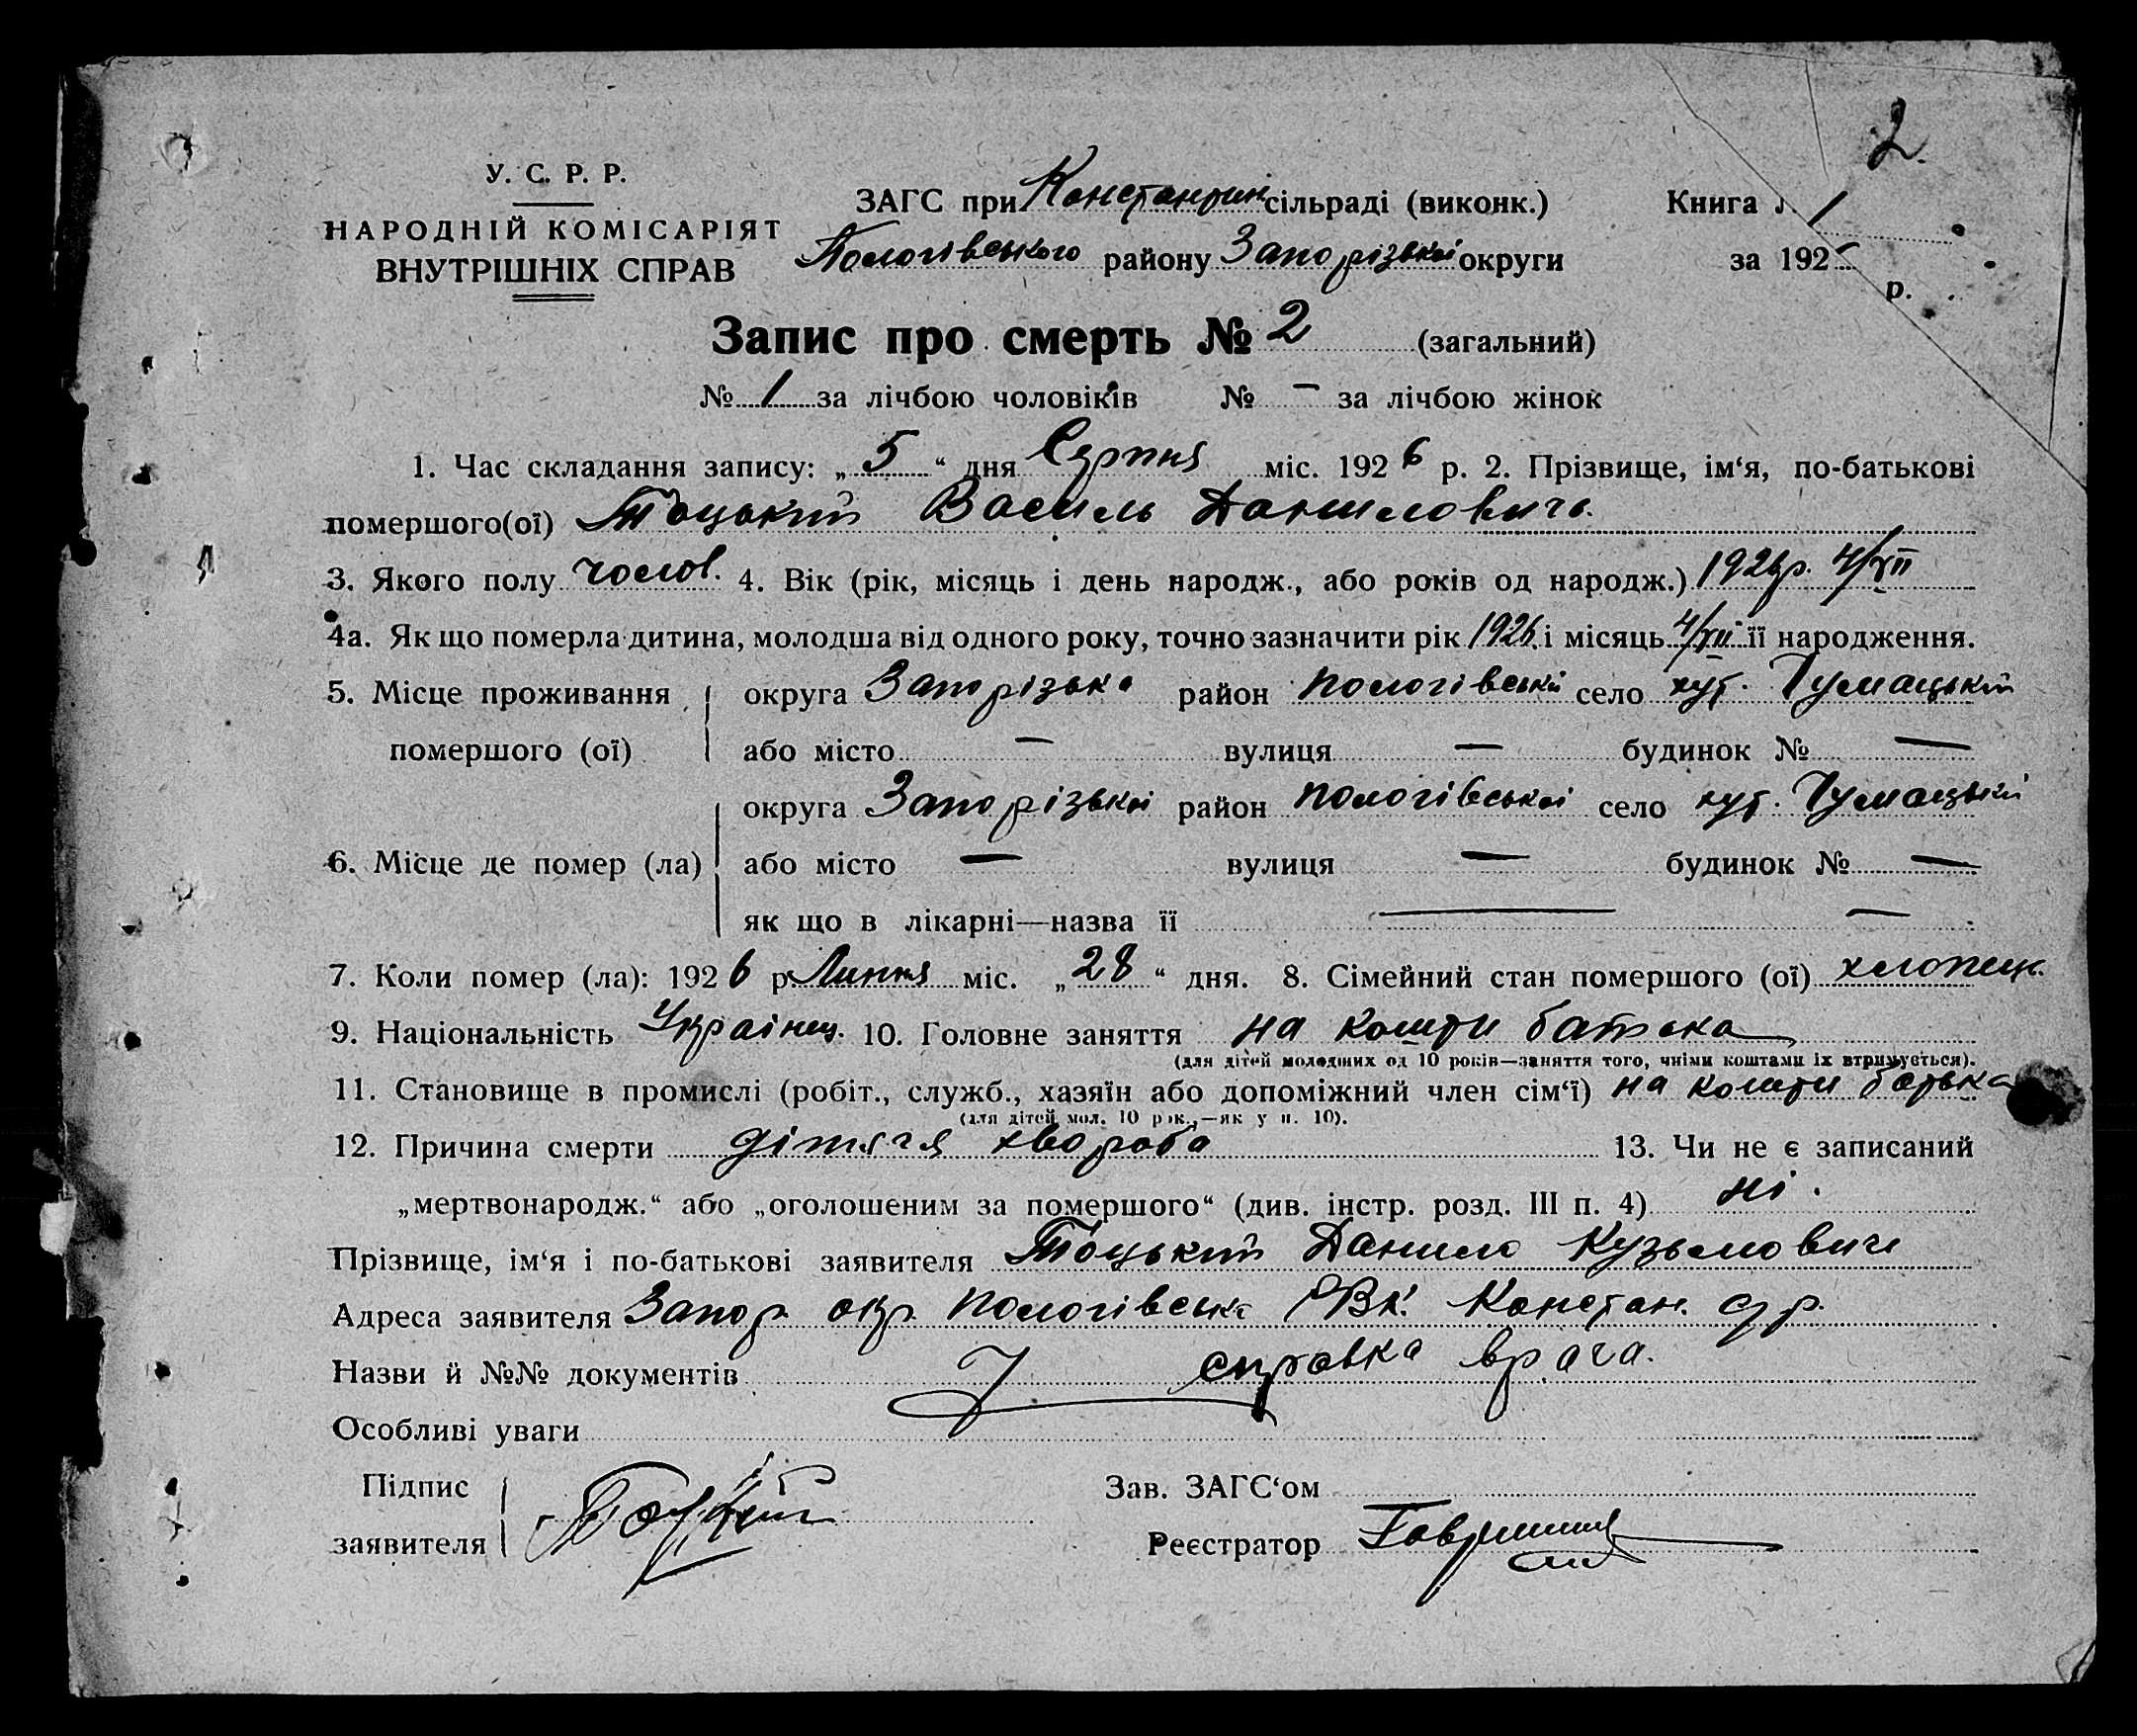 2.
У. С. Р. Р.
НАРОДНІЙ КОМІСАРІЯТ
ВНУТРІШНІХ СПРАВ
ЗАГС при Константин сільраді (виконк.)
Пологівського району Запорізької округи
Книга 1
за 192 р.
Запис про смерть № 2 (загальний)
№ 1 за лічбою чоловіків № — за лічбою жінок
1. Час складання запису: „5“ дня Серпня міс. 1926 р. 2. Прізвище, ім‘я, по-батькові
помершого(ої) Тоцький Василь Данилович.
3. Якого полу чолов. 4. Вік (рік, місяць і день народж., або років од народж.) 1926р. 4/VII
4а. Як що померла дитина, молодша від одного року, точно зазначити рік 1926. і місяць 4/VII її народження.
5. Місце проживання помершого (ої) округа Запорізька район Пологівський село хут. Чумацький
або місто — вулиця — будинок № —
6. Місце де помер (ла) округа Запорізької район Пологівської село хут. Чумацький
або місто — вулиця — будинок № —
як що в лікарні—назва її — —
7. Коли помер (ла): 1926 р. Липня міс. „28“ дня. 8. Сімейний стан помершого (ої) хлопець.
9. Національність Українец. 10. Головне заняття на кошти батька
(для дітей молодших од 10 років—заняття того, чиїми коштами їх втримується).
11. Становище в промислі (робіт., служб., хазяїн або допоміжний член сім‘ї) на кошти батька
(для дітей мол. 10 рок.,—як у п. 10).
12. Причина смерти дітяча хвороба 13. Чи не є записаний
„мертвонародж.“ або „оголошеним за помершого“ (див. інстр. розд. III п. 4) ні.
Прізвище, ім‘я і по-батькові заявителя Тоцький Данило Кузьмович
Адреса заявителя Запор. окр. Пологівськ РВК. Констан. с/р.
Назви й №№ документів справка врача.
Особливі уваги
Підпис заявителя Тоцький
Зав. ЗАГС‘ом
Реєстратор